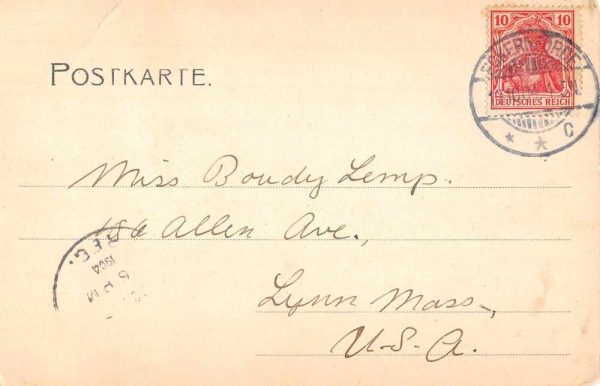 10 10
DEUTSCHES REICH
ECKERNFÖRDE
C
POSTKARTE.
Miss Boudy Lemp.
186 Allen Ave.,
Lynn Mass.,
U.S.A.
REC.
1904
5 PM